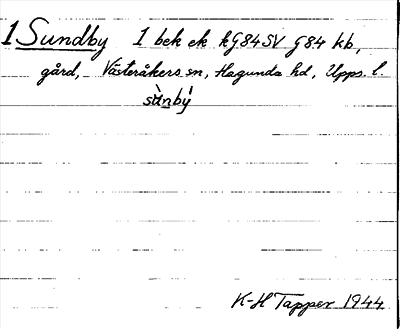 1 Sundby 1 bek ek kG84SV G84 kb,
gård, Västeråkers sn, Hagunda hd, Upps. l.
sùnbý
K-H Tapper 1944